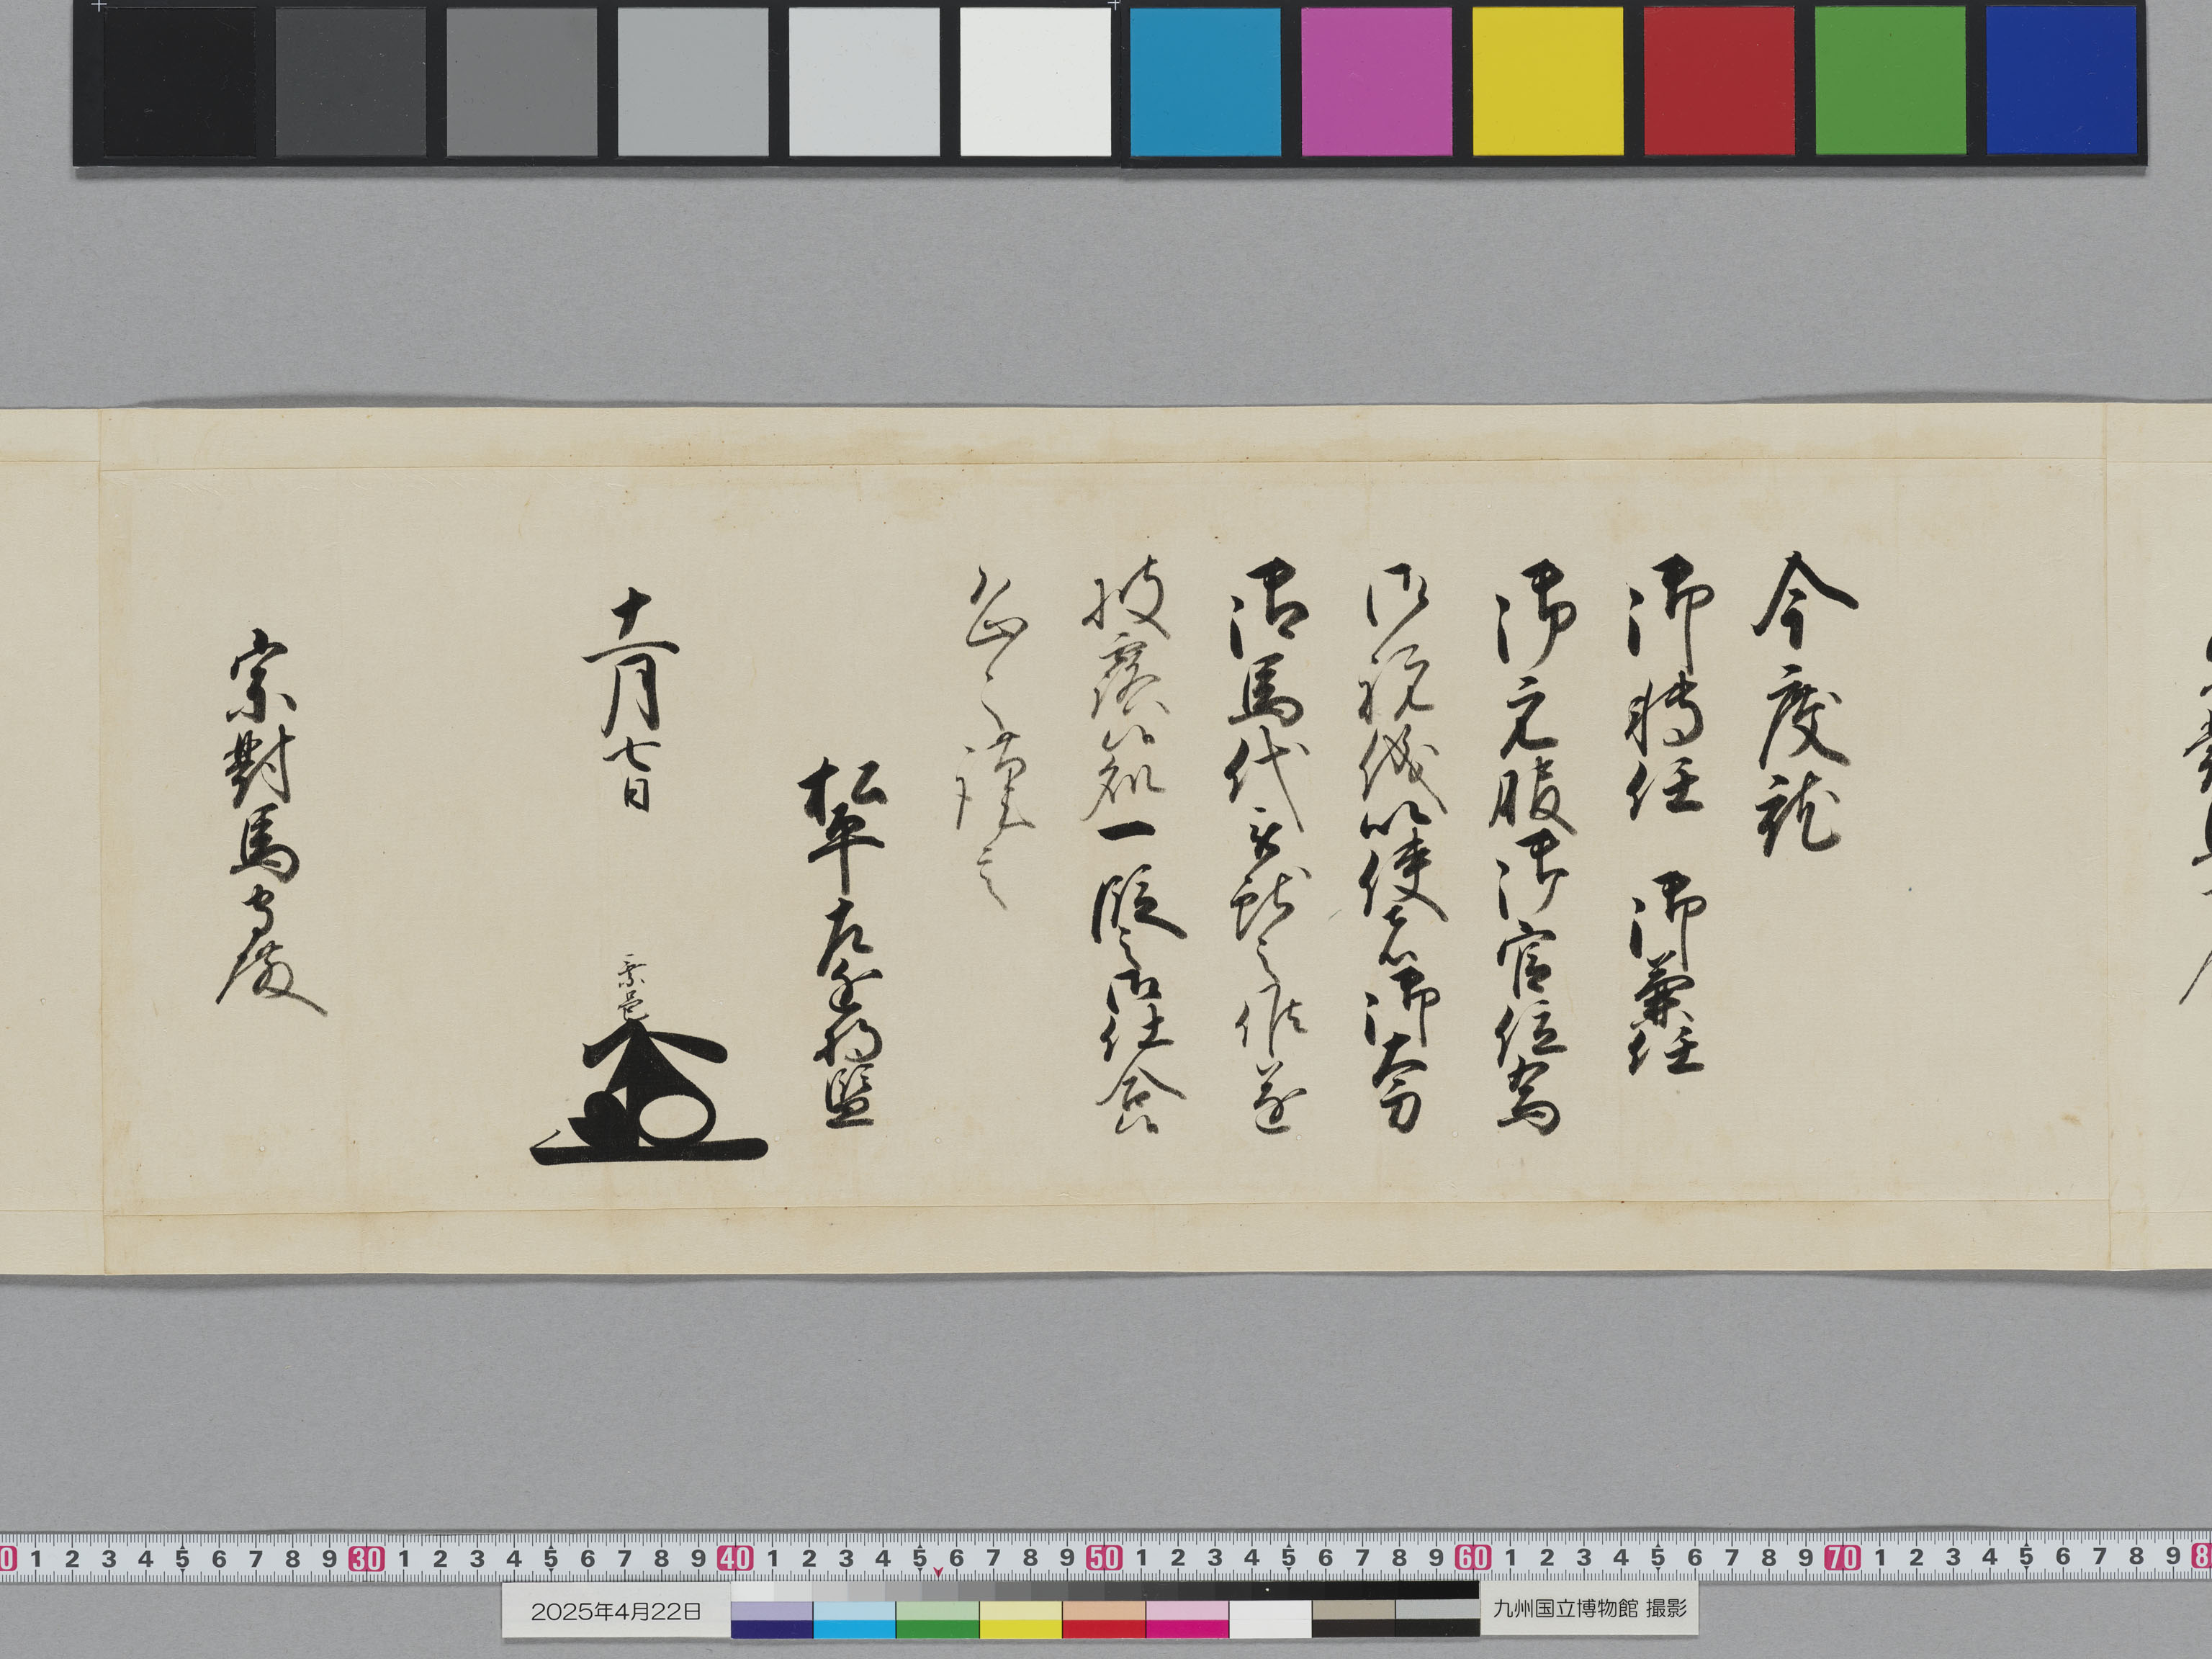 今度就
御轉任 御兼任
御元服御官位為
御祝儀以使者御太刀
御馬代被献之候遂
披露候処一段之御仕合候
恐々謹言
松平左近将監
十一月七日
乗邑
宗對馬守殿
0 1 2 3 4 5 6 7 8 9 30 1 2 3 4 5 6 7 8 9 40 1 2 3 4 5 6 7 8 9 50 1 2 3 4 5 6 7 8 9 60 1 2 3 4 5 6 7 8 9 70 1 2 3 4 5 6 7 8 9 8
2025年4月22日
九州国立博物館 撮影